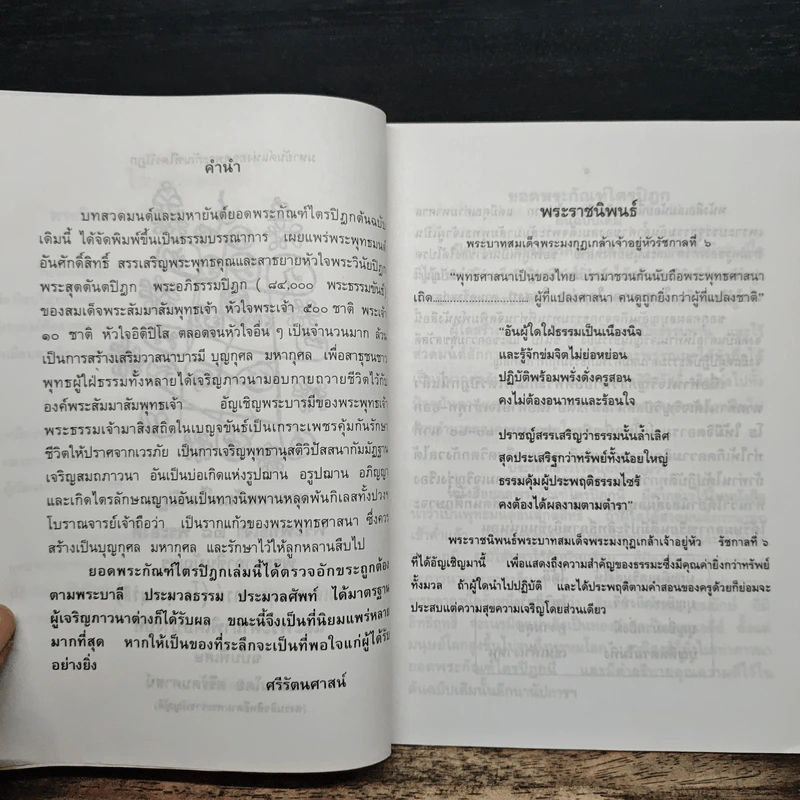 คำนำ
บทสวดมนต์และมหายันต์ยอดพระกัณฑ์ไตรปิฎกต้นฉบับ
เดิมนี้ ได้จัดพิมพ์ขึ้นเป็นธรรมบรรณาการ เผยแพร่พระพุทธมนต์
อันศักดิ์สิทธิ์ สรรเสริญพระพุทธคุณและสาธยายหัวใจพระวินัยปิฎก
พระสุตตันตปิฎก พระอภิธรรมปิฎก ( ๘๔,๐๐๐ พระธรรมขันธ์)
ของสมเด็จพระสัมมาสัมพุทธเจ้า หัวใจพระเจ้า ๕๐๐ ชาติ พระเจ้า
๑๐ ชาติ หัวใจอิติปิโส ตลอดจนหัวใจอื่น ๆ เป็นจำนวนมาก ล้วน
เป็นการสร้างเสริมวาสนาบารมี บุญกุศล มหากุศล เพื่อสาธุชนชาว
พุทธผู้ใฝ่ธรรมทั้งหลายได้เจริญภาวนามอบกายถวายชีวิตไว้กับ
องค์พระสัมมาสัมพุทธเจ้า อัญเชิญพระบารมีของพระพุทธเจ้า
พระธรรมเจ้ามาสิงสถิตในเบญจขันธ์เป็นเกราะเพชรคุ้มกันรักษา
ชีวิตให้ปราศจากเวรภัย เป็นการเจริญพุทธานุสติวิปัสสนากัมมัฏฐาน
เจริญสมถภาวนา อันเป็นบ่อเกิดแห่งรูปฌาน อรูปฌาน อภิญญา
และเกิดไตรลักษณญานอันเป็นทางนิพพานหลุดพ้นกิเลสทั้งปวง
โบราณจารย์เจ้าถือว่า เป็นรากแก้วของพระพุทธศาสนา ซึ่งควร
สร้างเป็นบุญกุศล มหากุศล และรักษาไว้ให้ลูกหลานสืบไป
ยอดพระกัณฑ์ไตรปิฎกเล่มนี้ได้ตรวจอักขระถูกต้อง
ตามพระบาลี ประมวลธรรม ประมวลศัพท์ ได้มาตรฐาน
ผู้เจริญภาวนาต่างก็ได้รับผล ขณะนี้จึงเป็นที่นิยมแพร่หลาย
มากที่สุด หากให้เป็นของที่ระลึกจะเป็นที่พอใจแก่ผู้ได้รับ
อย่างยิ่ง
ศรีรัตนศาสน์
พระราชนิพนธ์
พระบาทสมเด็จพระมงกุฎเกล้าเจ้าอยู่หัวรัชกาลที่ ๖
“พุทธศาสนาเป็นของไทย เรามาชวนกันนับถือพระพุทธศาสนา
เถิด.............................. ผู้ที่แปลงศาสนา คนดูถูกยิ่งกว่าผู้ที่แปลงชาติ”
“อันผู้ใดใฝ่ธรรมเป็นเนืองนิจ
และรู้จักข่มจิตไม่ย่อหย่อน
ปฏิบัติพร้อมพรั่งดั่งครูสอน
คงไม่ต้องอนาทรและร้อนใจ
ปราชญ์สรรเสริญว่าธรรมนั้นล้ำเลิศ
สุดประเสริฐกว่าทรัพย์ทั้งน้อยใหญ่
ธรรมคุ้มผู้ประพฤติธรรมไซร้
คงต้องได้ผลงามตามตำรา”
พระราชนิพนธ์พระบาทสมเด็จพระมงกุฎเกล้าเจ้าอยู่หัว รัชกาลที่ ๖
ที่ได้อัญเชิญมานี้ เพื่อแสดงถึงความสำคัญของธรรมะซึ่งมีคุณค่ายิ่งกว่าทรัพย์
ทั้งมวล ถ้าผู้ใดนำไปปฏิบัติ และได้ประพฤติตามคำสอนของครูด้วยก็ย่อมจะ
ประสบแต่ความสุขความเจริญโดยส่วนเดียว